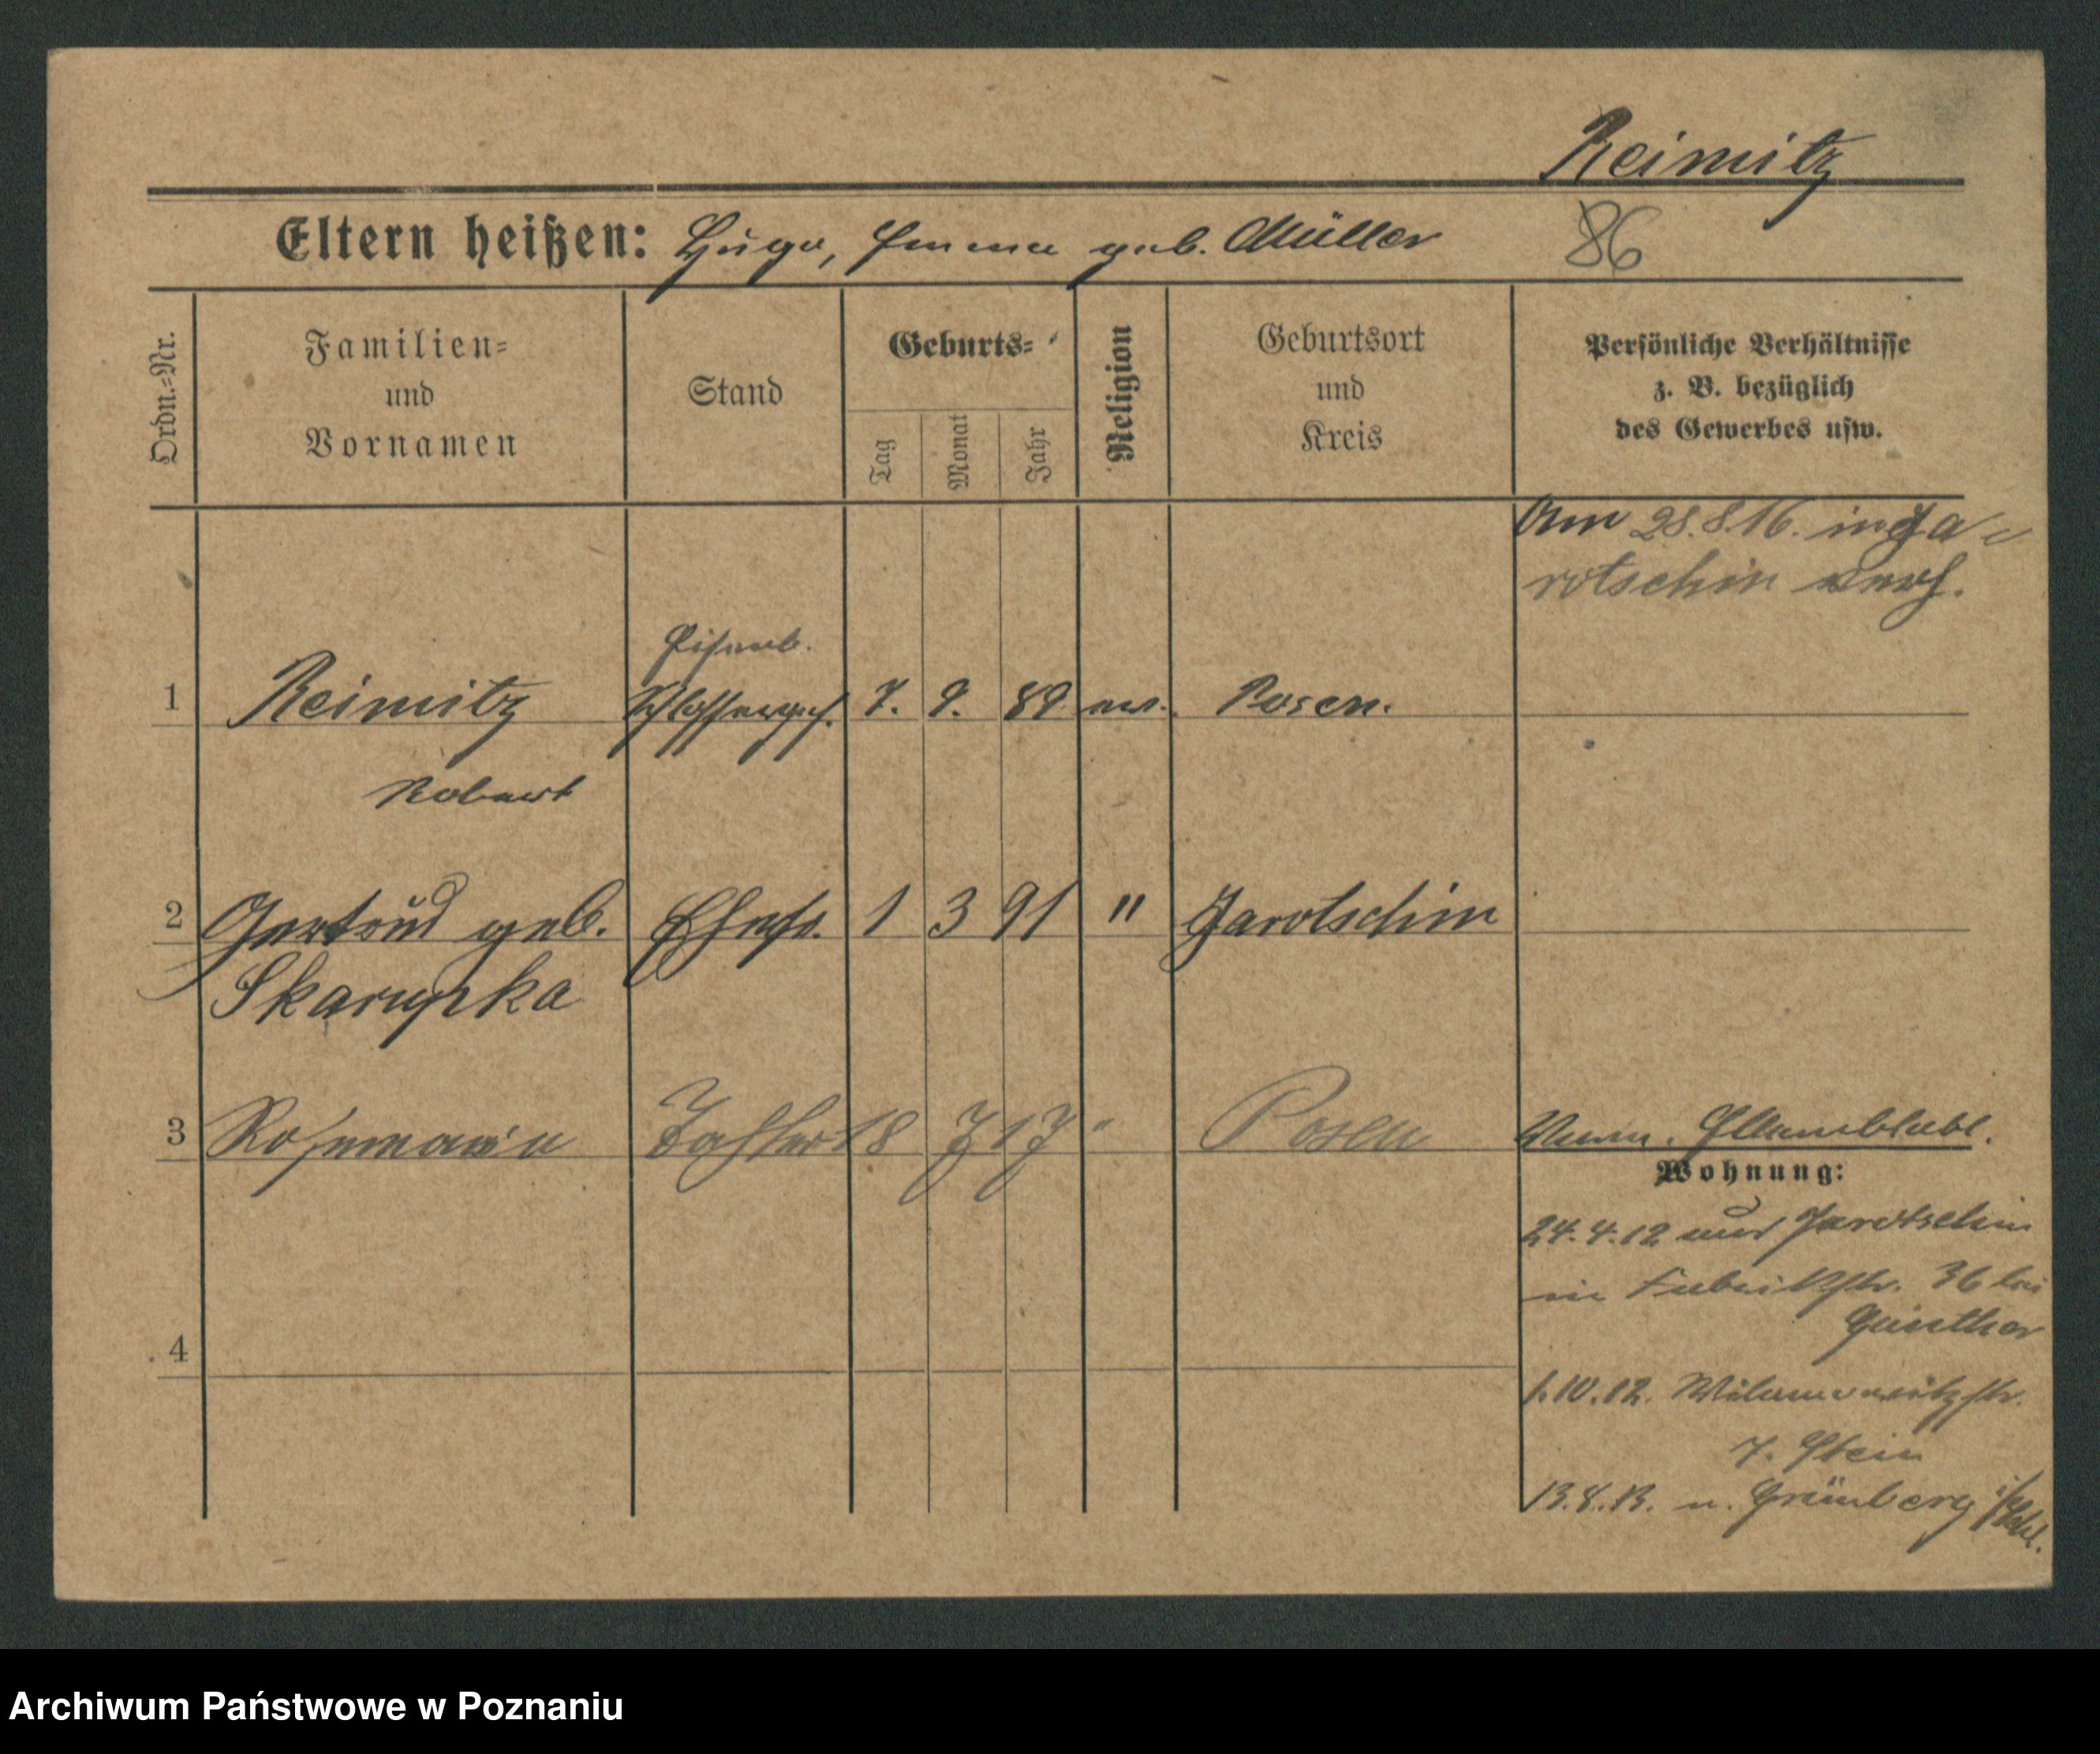 Reimitz
Eltern heißen: Hugo, Emma geb. Müller 86
Ordn.=Nr.
Familien=
und
Vornamen
Stand
Geburts=
Tag
Monat
Jahr
Religion
Geburtsort
und
Kreis
Persönliche Verhältnisse
z. B. bezüglich
des Gewerbes usw.
Am 28.8.16. in Ja-
rotschin verh.
Eisenb.
1 Reimitz Schlosserges. 7. 9. 89 ev. Posen.
Robert
2 Gertrud geb. Ehefr. 1 3 91 " Jarotschin
Skarupka
3 Rosemarie Tochter 18 7 17 " Posen
Wohnung:
24.4.12 aus Jarotschin
in Fabrikstr. 36 bei
Günther
4
1.10.12. Wilamowitzstr.
7. Stein
13.8.13. n. Grünberg i/Schl.
Archiwum Państwowe w Poznaniu